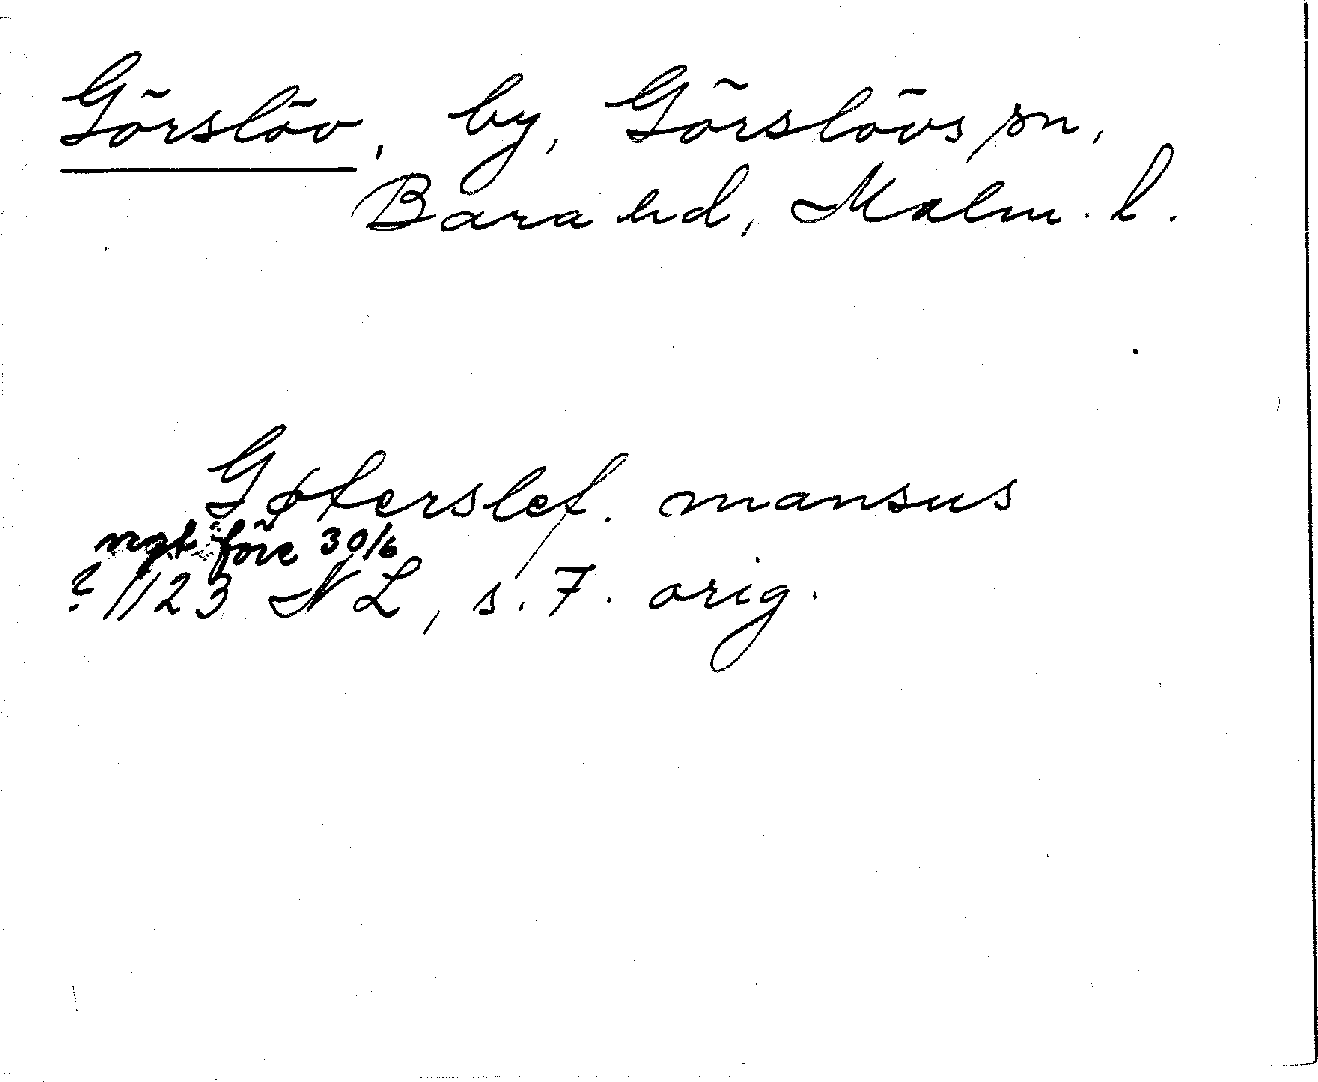 Görslöv, by, Görslövs sn,
Bara hd, Malm. l.
Gøterslef. mansus
ngt före 30/6
? 1123 NL, s. 7. orig.